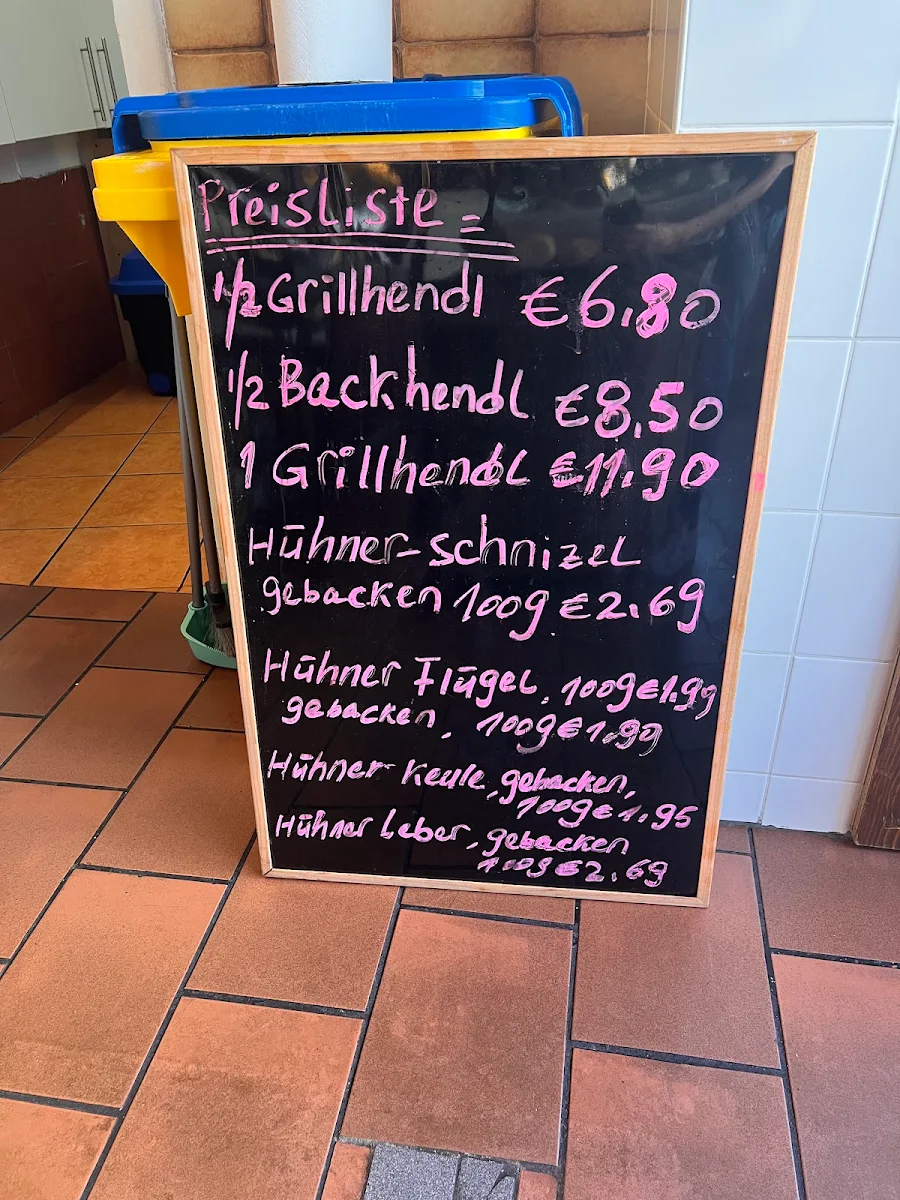 Preisliste =
1/2 Grillhendl €6,80
1/2 Backhendl €8,50
1 Grillhendl €11,90
Hühner-schnizel
gebacken 100g €2,69
Hühner Flügel, 100g €1,99
gebacken, 100g €1,99
Hühner Keule, gebacken,
100g €1,95
Hühner Leber, gebacken
100g €2,69